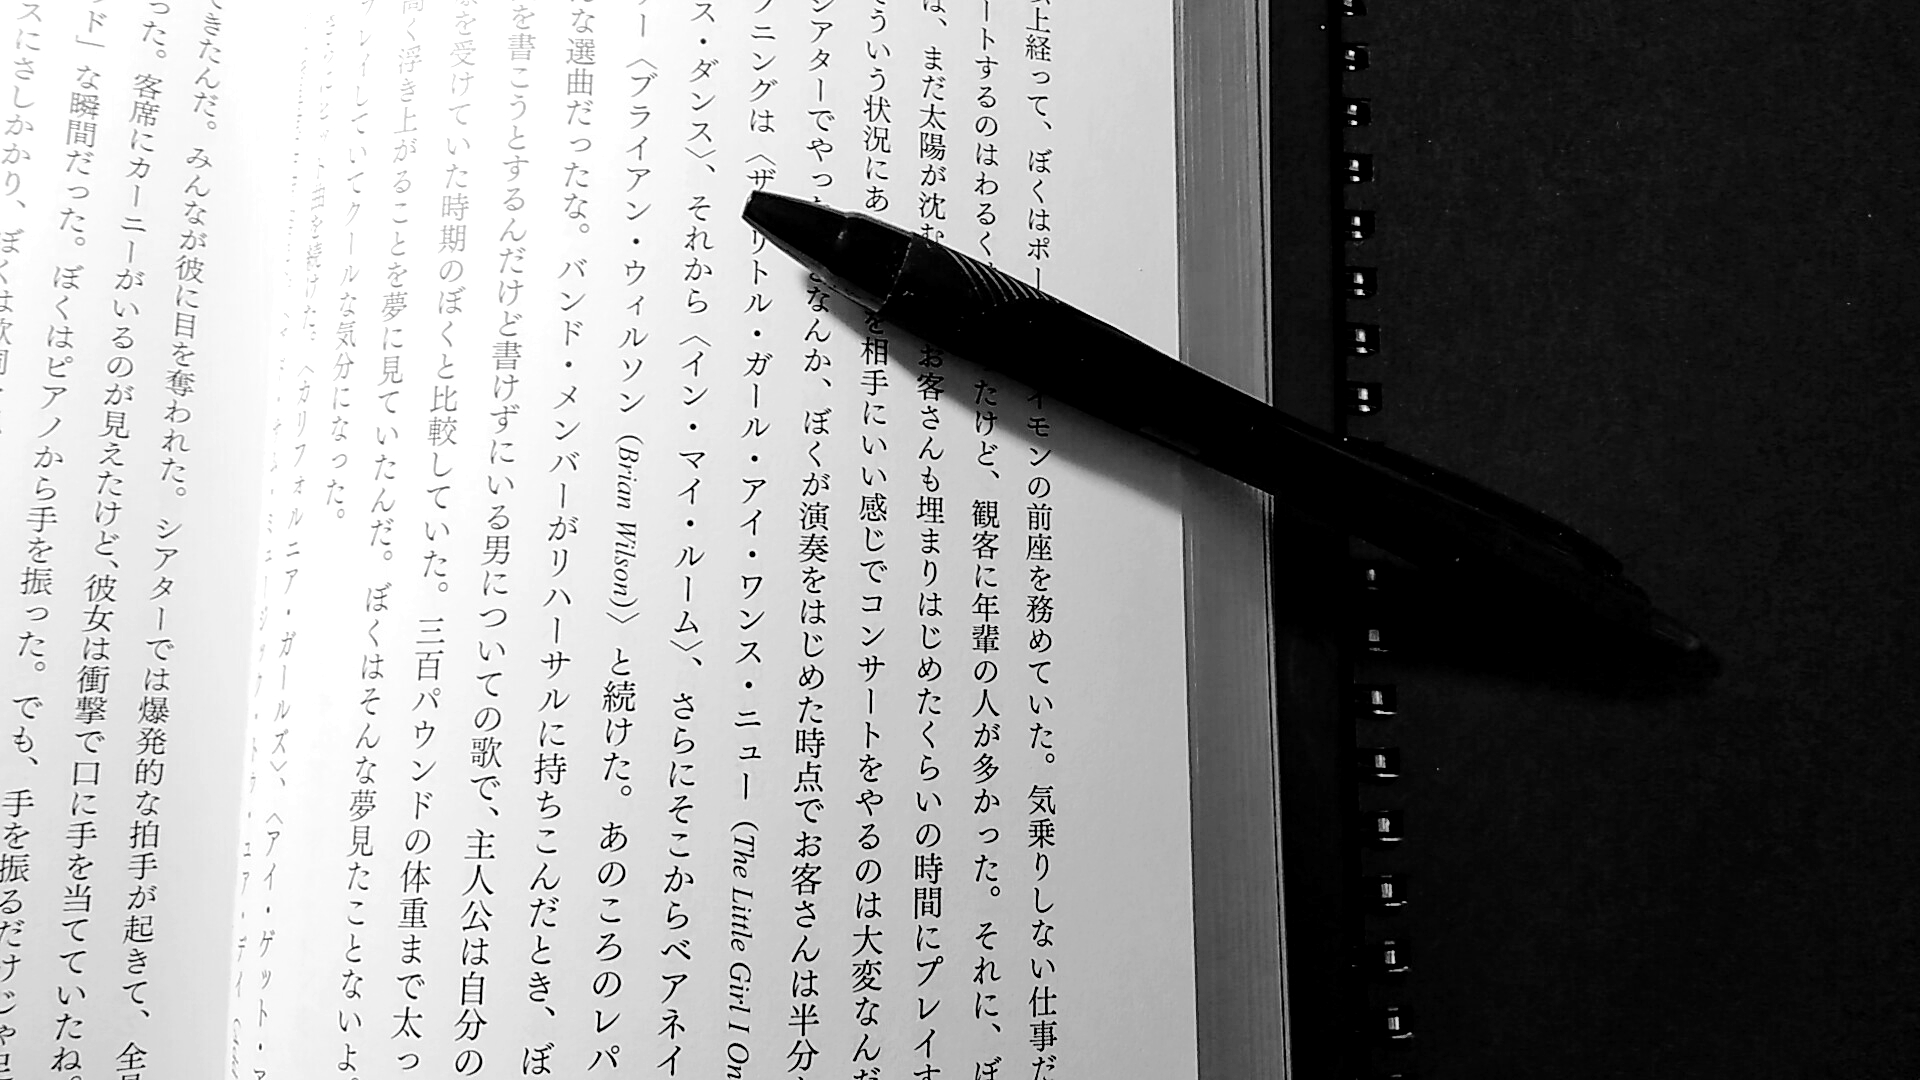 以上経って、ぼくはポー イモンの前座を務めていた。気乗りしない仕事だ
ートするのはわるく たけど、観客に年輩の人が多かった。それに、ぼ
は、まだ太陽が沈む お客さんも埋まりはじめたくらいの時間にプレイす
そういう状況にあ を相手にいい感じでコンサートをやるのは大変なんだ
シアターでやった きなんか、ぼくが演奏をはじめた時点でお客さんは半分
プニングは〈ザ リトル・ガール・アイ・ワンス・ニュー (The Little Girl I On
ス・ダンス〉、それから〈イン・マイ・ルーム〉、さらにそこからベアネイ
ー〈ブライアン・ウィルソン (Brian Wilson)〉と続けた。あのころのレパ
んな選曲だったな。バンド・メンバーがリハーサルに持ちこんだとき、ぼ
を書こうとするんだけど書けずにいる男についての歌で、主人公は自分の
を受けていた時期のぼくと比較していた。三百パウンドの体重まで太っ
高く浮き上がることを夢に見ていたんだ。ぼくはそんな夢見たことないよ。
プレイしていてクールな気分になった。
曲を続けた。〈カリフォルニア・ガールズ〉、〈アイ・ゲット・ア
・ミュージック・
できたんだ。みんなが彼に目を奪われた。シアターでは爆発的な拍手が起きて、全員
った。客席にカーニーがいるのが見えたけど、彼女は衝撃で口に手を当てていたね。
ッド」な瞬間だった。ぼくはピアノから手を振った。でも、手を振るだけじゃ
スにさしかかり、ぼくは歌詞